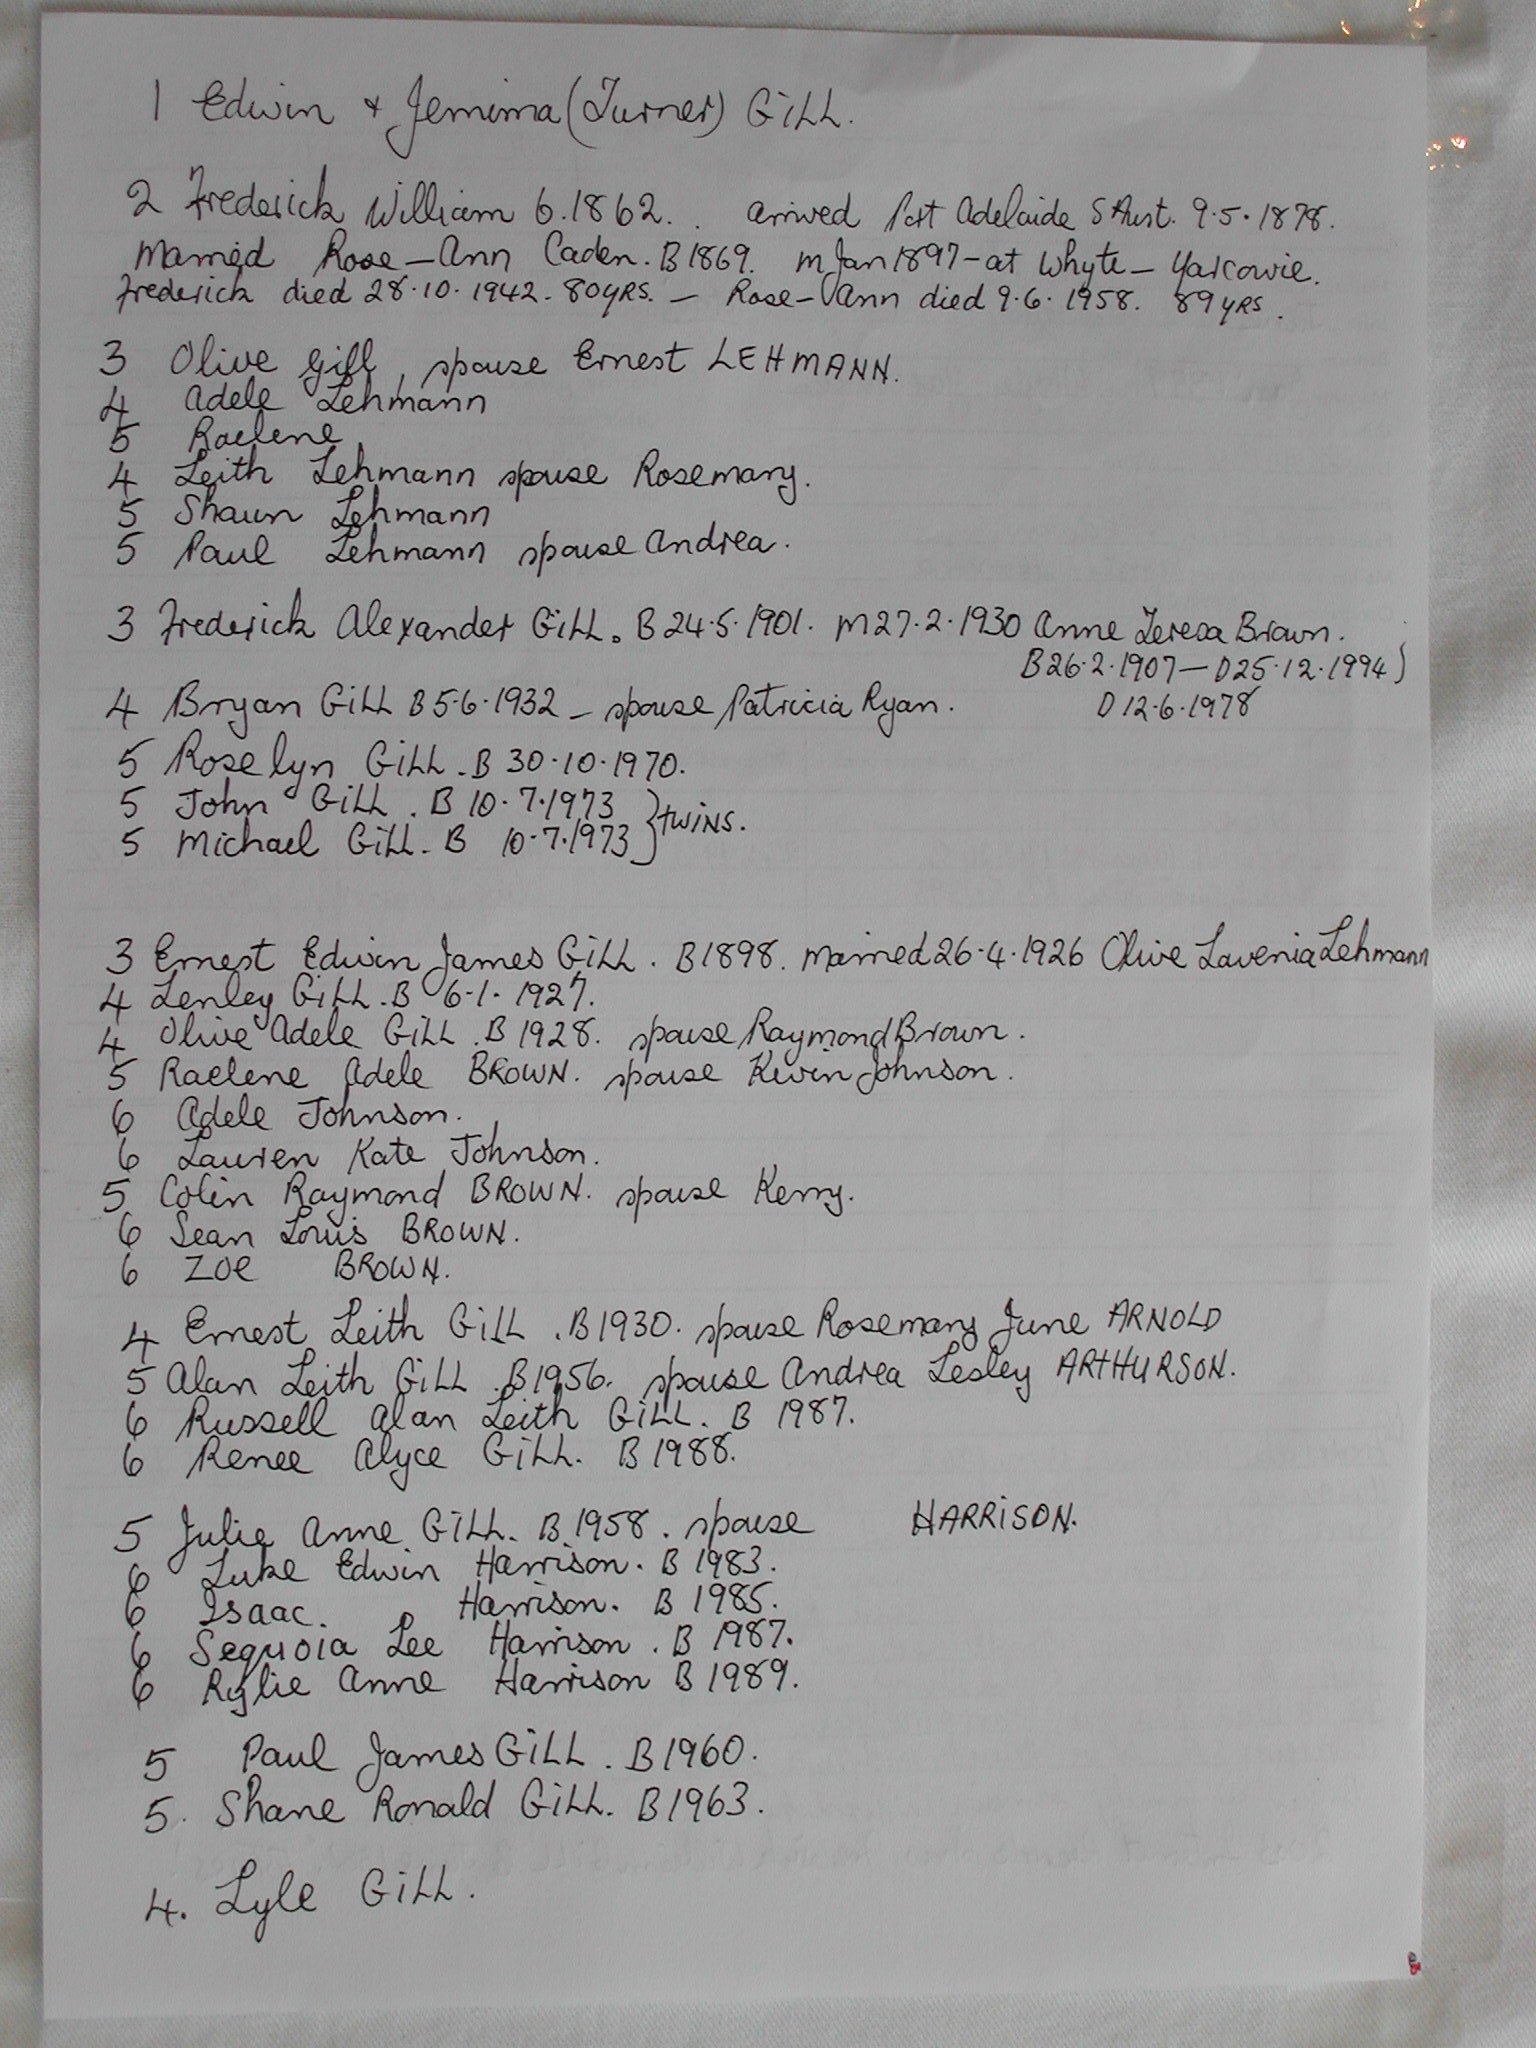 1 Edwin + Jemima (Turner) GILL.
2 Frederick William 6.1862. . arrived Port Adelaide S Aust. 9.5.1878.
Married Rose-Ann Caden. B1869. m Jan 1897-at Whyte-Yarcowie.
Frederick died 28.10.1942. 80YRS. - Rose-Ann died 9.6.1958. 89YRS.
3 Olive Gill, spouse Ernest LEHMANN.
4 Adele Lehmann
5 Raelene
4 Leith Lehmann spouse Rosemary.
5 Shaun Lehmann
5 Paul Lehmann spouse Andrea.
3 Frederick Alexander GILL. B24.5.1901. m27.2.1930 Anne Teresa Brown.
B26.2.1907-D25.12.1994)
4 Bryan GILL B5.6.1932 - spouse Patricia Ryan. D12.6.1978
5 Roselyn GILL. B 30.10.1970.
5 John GILL. B 10.7.1973
5 Michael GILL. B 10.7.1973 } twins.
3 Ernest Edwin James GILL. B1898. married 26.4.1926 Olive Lavenia Lehmann
4 Lenley GILL. B 6.1.1927.
4 Olive Adele GILL. B1928. spouse Raymond Brown.
5 Raelene Adele BROWN. spouse Kevin Johnson.
6 Adele Johnson.
6 Lauren Kate Johnson.
5 Colin Raymond BROWN. spouse Kerry.
6 Sean Louis BROWN.
6 Zoe BROWN.
4 Ernest Leith GILL. B1930. spouse Rosemary June ARNOLD
5 Alan Leith GILL. B1956. spouse Andrea Lesley ARTHURSON.
6 Russell Alan Leith GILL. B 1987.
6 Renee Alyce GILL. B1988.
5 Julie Anne GILL. B.1958. spouse HARRISON.
6 Luke Edwin Harrison. B 1983.
6 Isaac. Harrison. B 1985.
6 Sequoia Lee Harrison. B 1987.
6 Rylie Anne Harrison B1989.
5 Paul James GILL. B1960.
5. Shane Ronald GILL. B1963.
4. Lyle GILL.